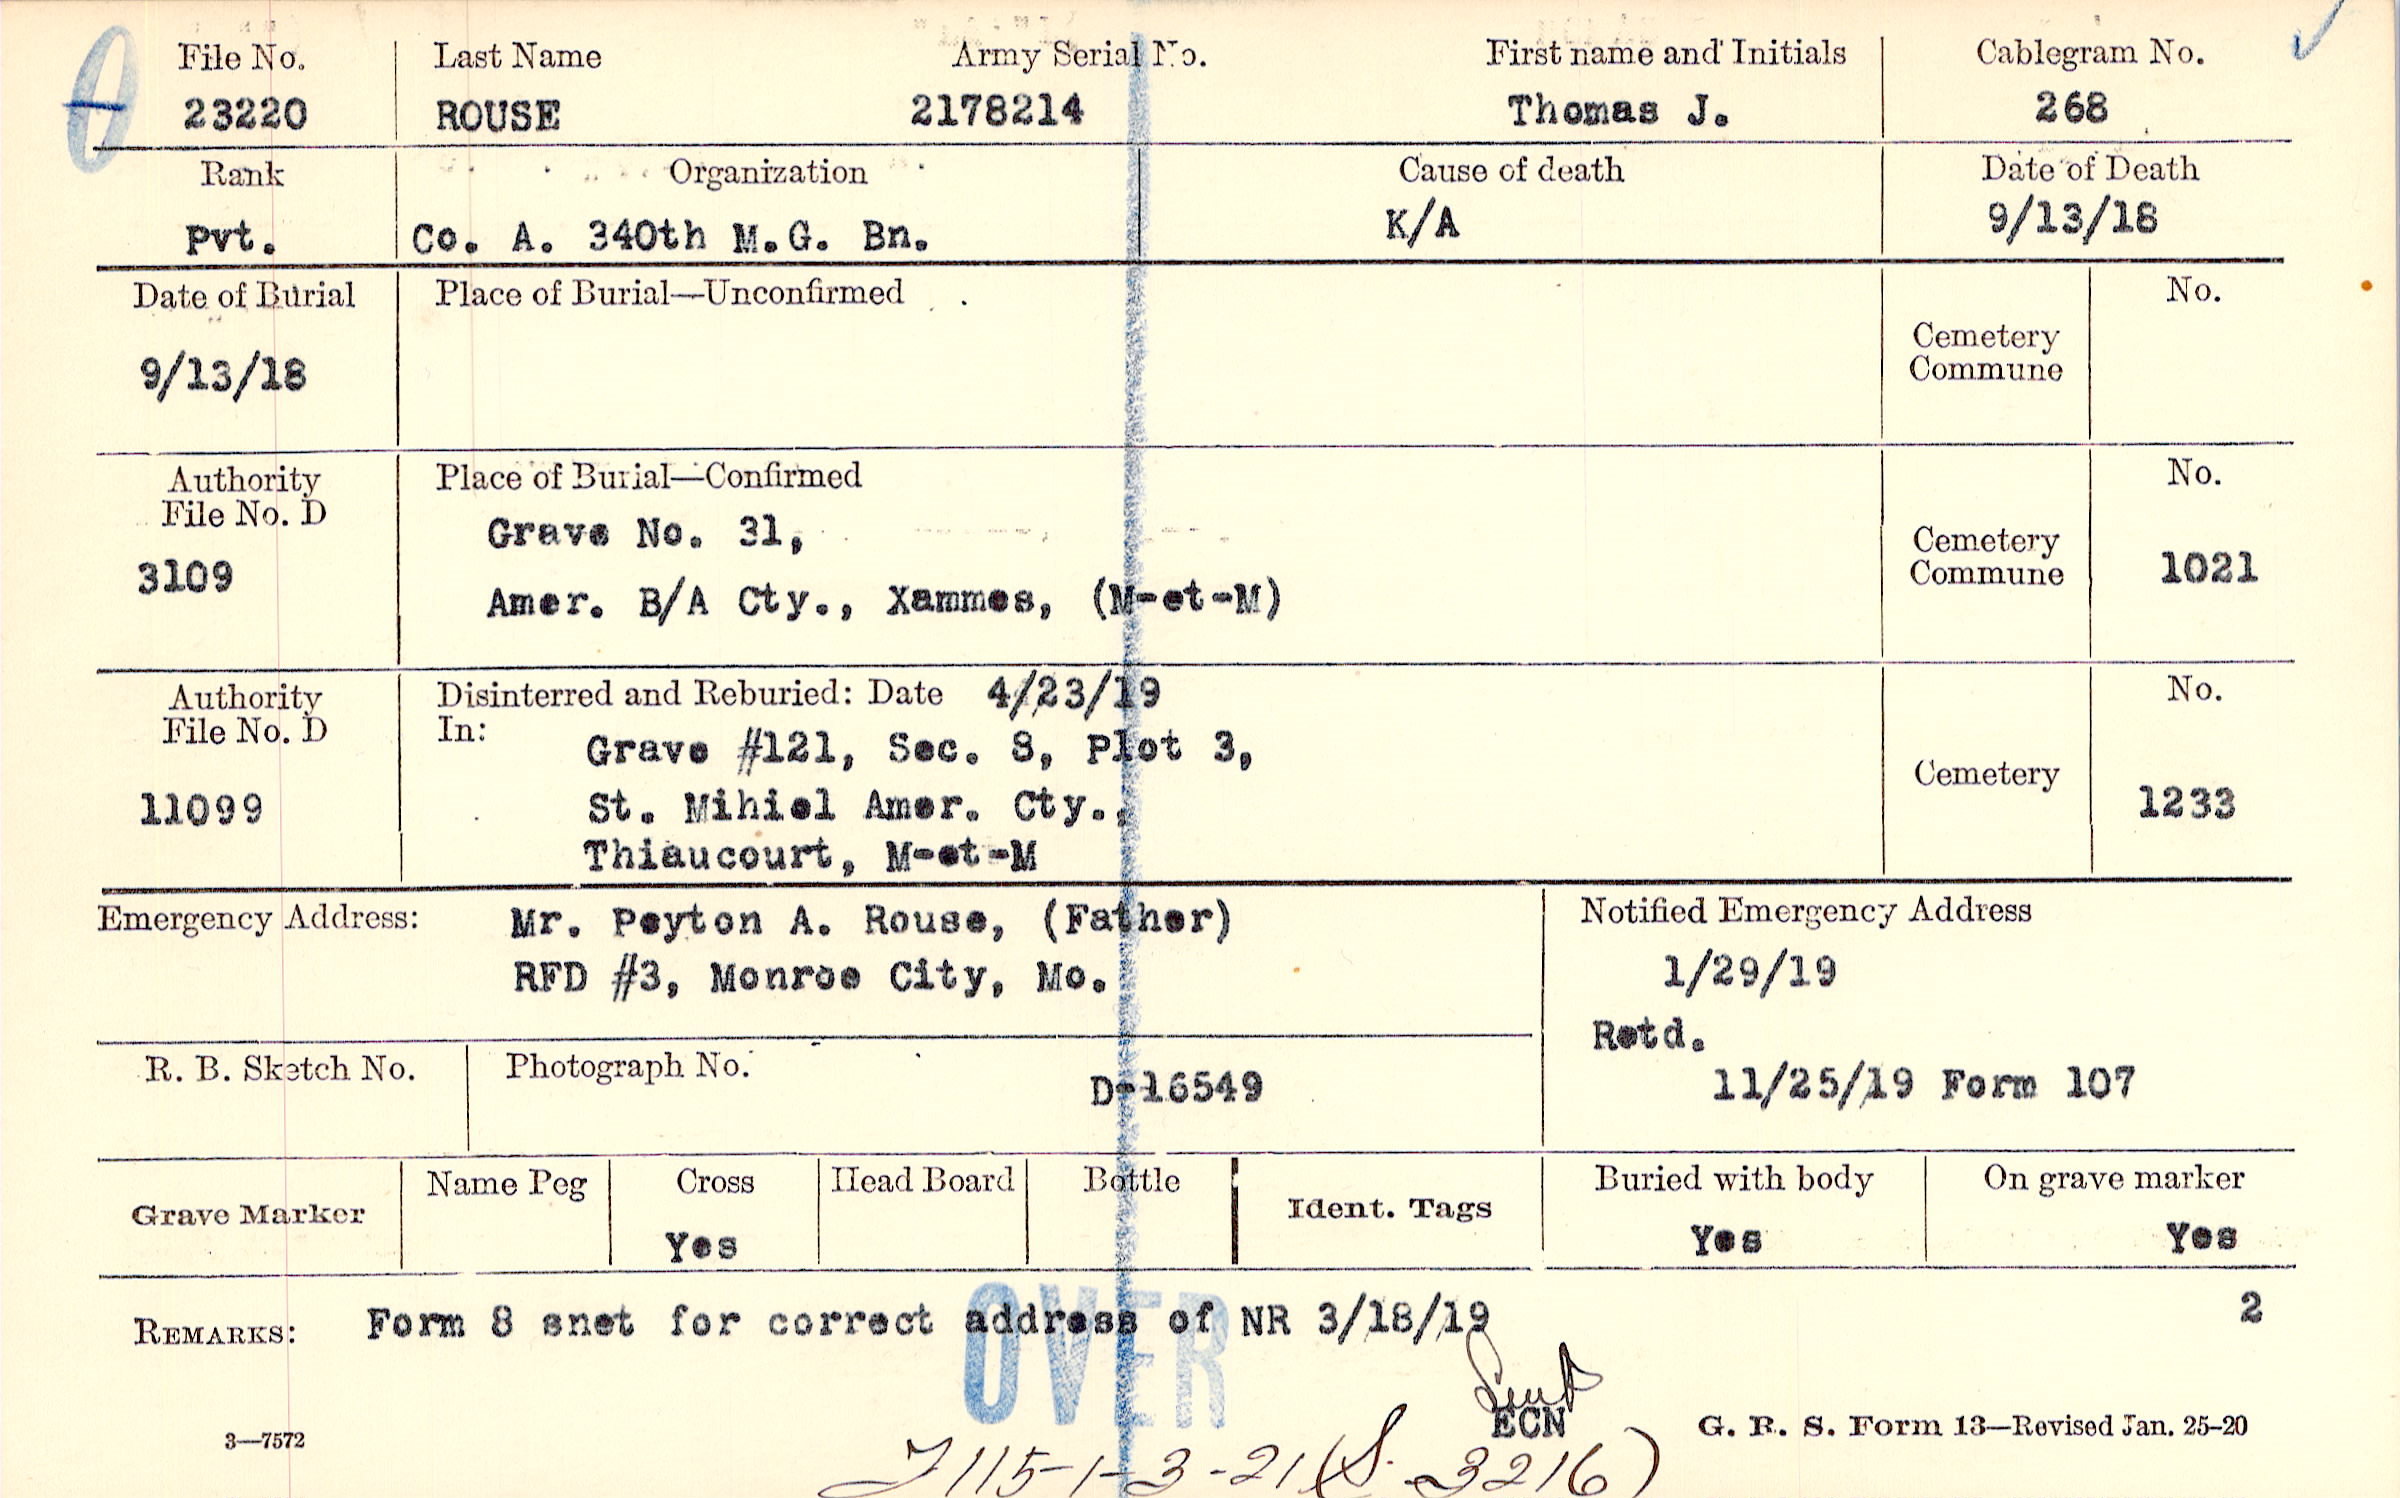 File No. Last Name Army Serial No. First name and Initials Cablegram No.
23220 ROUSE 2178214 Thomas J. 268
Rank Organization Cause of death Date of Death
Pvt. Co. A. 340th M.G. Bn. K/A 9/13/18
Date of Burial Place of Burial—Unconfirmed No.
Cemetery
Commune
9/13/18
Authority Place of Burial—Confirmed No.
File No. D Grave No. 31, Cemetery
3109 Commune 1021
Amer. B/A Cty., Xammes, (M-et-M)
Authority Disinterred and Reburied: Date 4/23/19 No.
File No. D In:
Grave #121, Sec. 8, Plot 3,
Cemetery
11099 St. Mihiel Amer. Cty., 1233
Thiaucourt, M-et-M
Emergency Address: Mr. Peyton A. Rouse, (Father) Notified Emergency Address
RFD #3, Monroe City, Mo. 1/29/19
Retd.
R. B. Sketch No. Photograph No. D-16549 11/25/19 Form 107
Name Peg Cross Head Board Bottle Buried with body On grave marker
Grave Marker Ident. Tags
Yes Yes Yes
REMARKS: Form 8 snet for correct address of NR 3/18/19 2
OVER
Sent
ECN
3—7572 G. R. S. Form 13—Revised Jan. 25-20
115-1-3-21 (S. 3216)